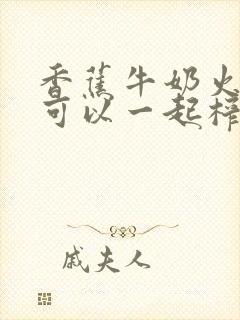 香蕉牛奶火
可以一起榨
戚夫人